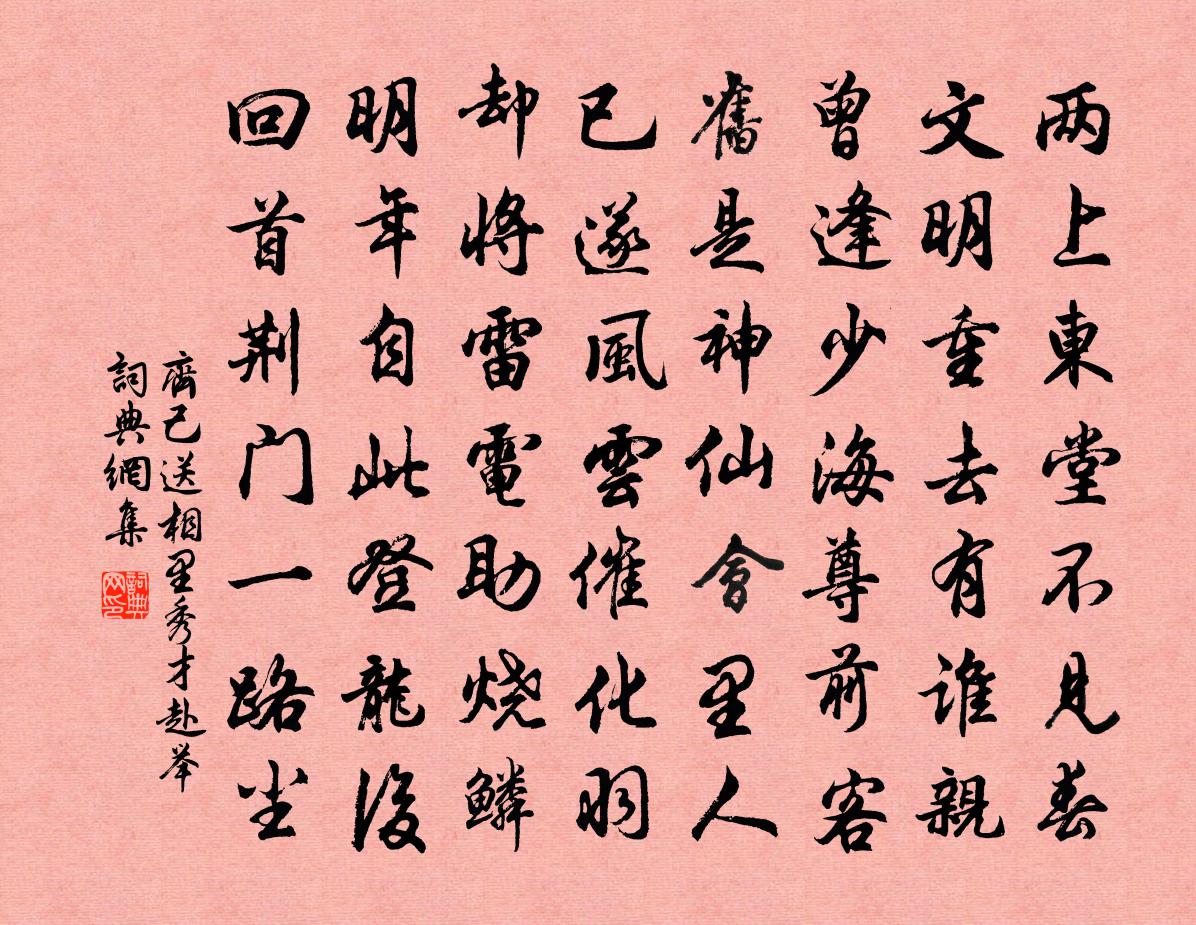 两上東堂不見春
文明重去有誰親
曾逢少海尊前客
舊是神仙會里人
已遂風雲催化羽
却将雷電助烧鳞
明年自此登龍後
回首荆门一路尘
齊己送相里秀才赴举
詞典網集
詞典网印